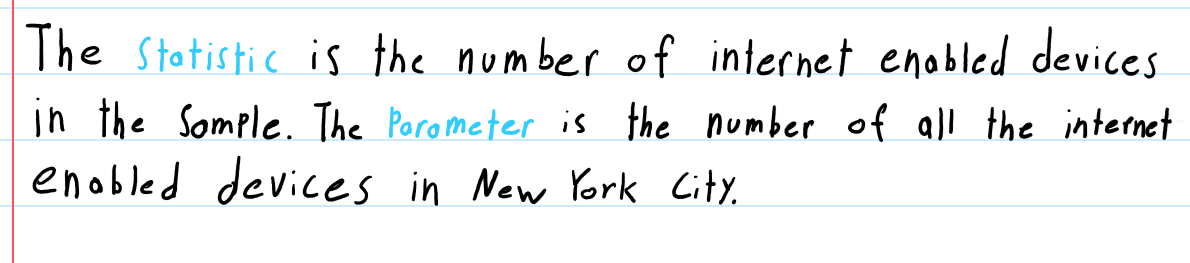 The Statistic is the number of internet enabled devices
in the Sample. The Parameter is the number of all the internet
enabled devices in New York City.